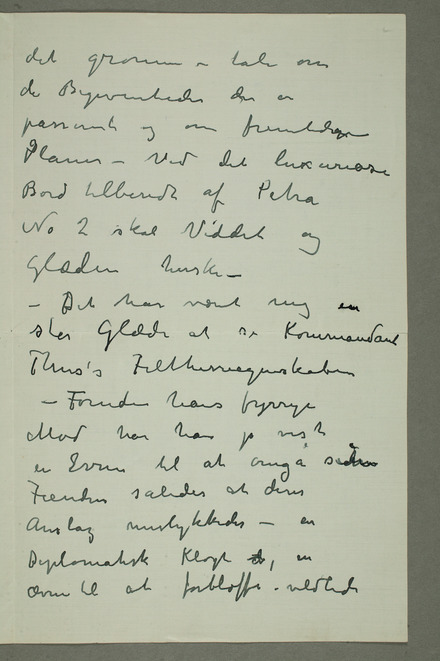 det grønne – tale om
de Begivenheder der er
passeret og om fremtidige
Planer – Ved det luxuriøse
Bord tilberedt af Petra
No 2 skal Viddet og
Glæden herske –
– Det har været mig en
stor Glæde at se Kommandant
Thiis's Feltherreegenskaber
– Foruden hans fyrrige
Mod har han jo vist
en Evne til at omgå
Fienden således at deres
Anslag mislykkedes – en
Diplomatisk Kløgt, en
ævne til at forbløffe